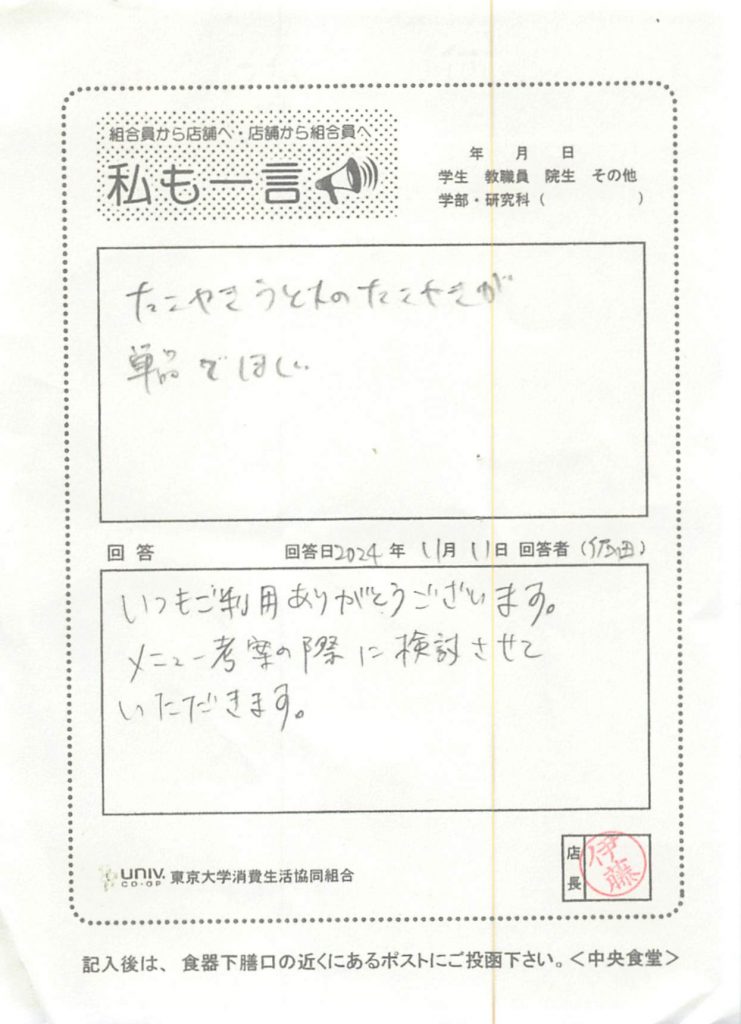 組合員から店舗へ・店舗から組合員へ
私も一言
年 月 日
学生 教職員 院生 その他
学部・研究科( )
たこやきうどんのたこやきが
単品でほしい
回答 回答日2024年 11月 11日 回答者( )
いつもご利用ありがとうございます。
メニュー考案の際に検討させて
いただきます。
UNIV. CO-OP 東京大学消費生活協同組合
店長 伊藤
記入後は、食器下膳口の近くにあるポストにご投函下さい。<中央食堂>